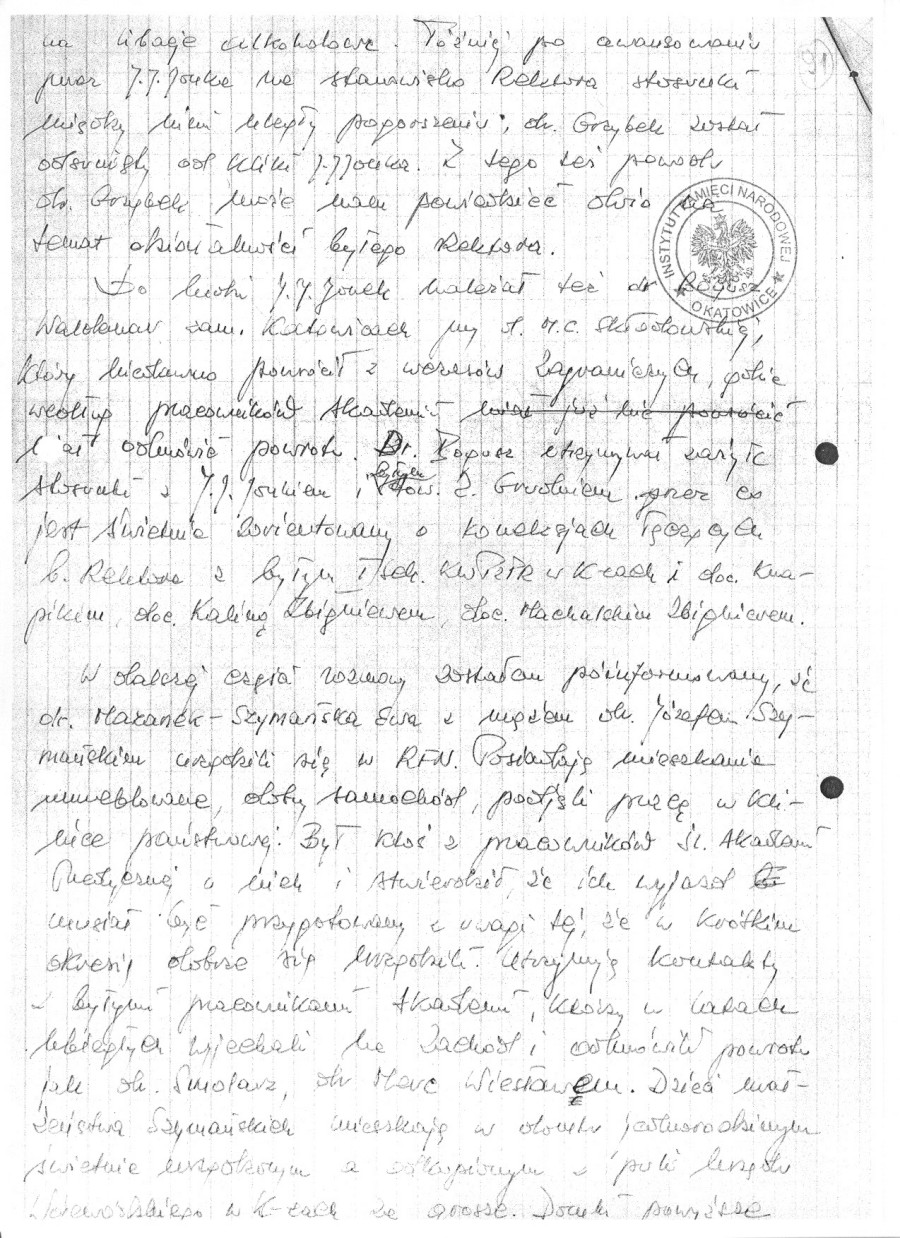 na libacje alkoholowe. Później po awansowaniu
przez J.J. Jonka na stanowisko Rektora stosunki
między nimi uległy pogorszeniu, dr. Grzybek został
odsunięty od kliki J.J Jonka. Z tego też powodu
dr. Grzybek może nam powiedzieć dużo na
temat działalności byłego Rektora.
INSTYTUT PAMIĘCI NARODOWEJ
O KATOWICE
Do kliki J.J. Jonek należał też dr
Waldemar zam. Katowicach przy ul. M.C. Skłodowskiej,
który niedawno powrócił z wczasów zagranicznych, gdzie
według pracowników Akademii miał już nie powrócić
miał odmówić powrotu. Dr. utrzymywał zażyłe
stosunki z J.J. Jonkiem i byłym tow. Z. Grudniem przez co
jest świetnie zorientowany o koneksjach łączących
b. Rektora z byłym I Sek. KW PZPR w K-cach i doc. Kna-
pikiem, doc. Kaliną Zbigniewem, doc. Machalskim Zbigniewem.
W dalszej części rozmowy zostałem poinformowany, że
dr. Mazanek-Szymańska Ewa z mężem dr. Józefem Szy-
mańskim urządzili się w RFN. Posiadają mieszkanie
umeblowane, dobry samochód, podjęli pracę w kli-
nice państwowej. Był ktoś z pracowników Śl. Akademii
Medycznej u nich i stwierdził, że ich wyjazd
musiał być przygotowany z uwagi tej, że w krótkim
okresie dobrze się urządzili. Utrzymują kontakty
z byłymi pracownikami Akademii, którzy w latach
ubiegłych wyjechali na Zachód i odmówili powrotu
jak dr. Smolarz, dr Marc Wiesławem. Dzieci mał-
żeństwa Szymańskich mieszkają w domku jednorodzinnym
świetnie urządzonym a odkupionym z puli Urzędu
Wojewódzkiego w K-cach za grosze. Domki powyższe